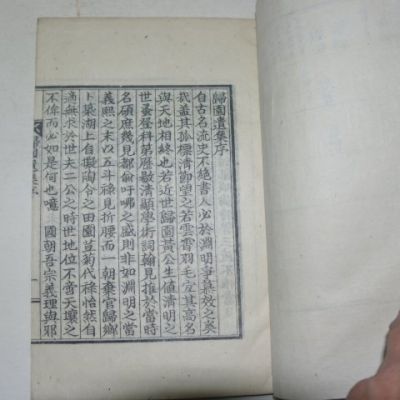 歸園遺集序
自古名流史不絕書人必於淵明爭慕效之奚
哉盖其孤標清節望之若雲霄羽毛定其高名
與天地相終也若近世歸園黃公生値清明之
世蚤登科第歷敭清顯學術詞翰見推於當時
名碩庶幾見都俞吁咈之盛則非如淵明之當
義熙之末以五斗祿見折腰而一朝棄官歸鄕
卜築湖上自擬陶令之田園荳菊代祿怡然自
適無求於世夫二公之時世地位不啻天壤之
不侔而必如是何也噫 國朝吾宗義理與耶